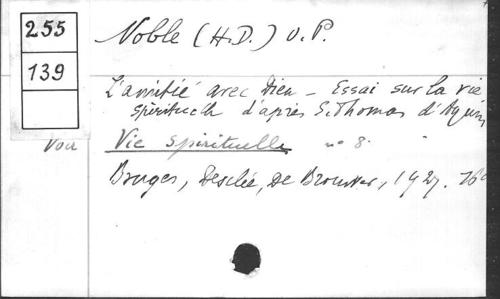 255
139
Noble (H.D.) O.P.
L'amitié avec Dieu - Essai sur la vie
spirituelle d'après S. Thomas d'Aquin,
Voir Vie spirituelle, no 8.
Bruges, Desclée, De Brouwer, 1927. 16°